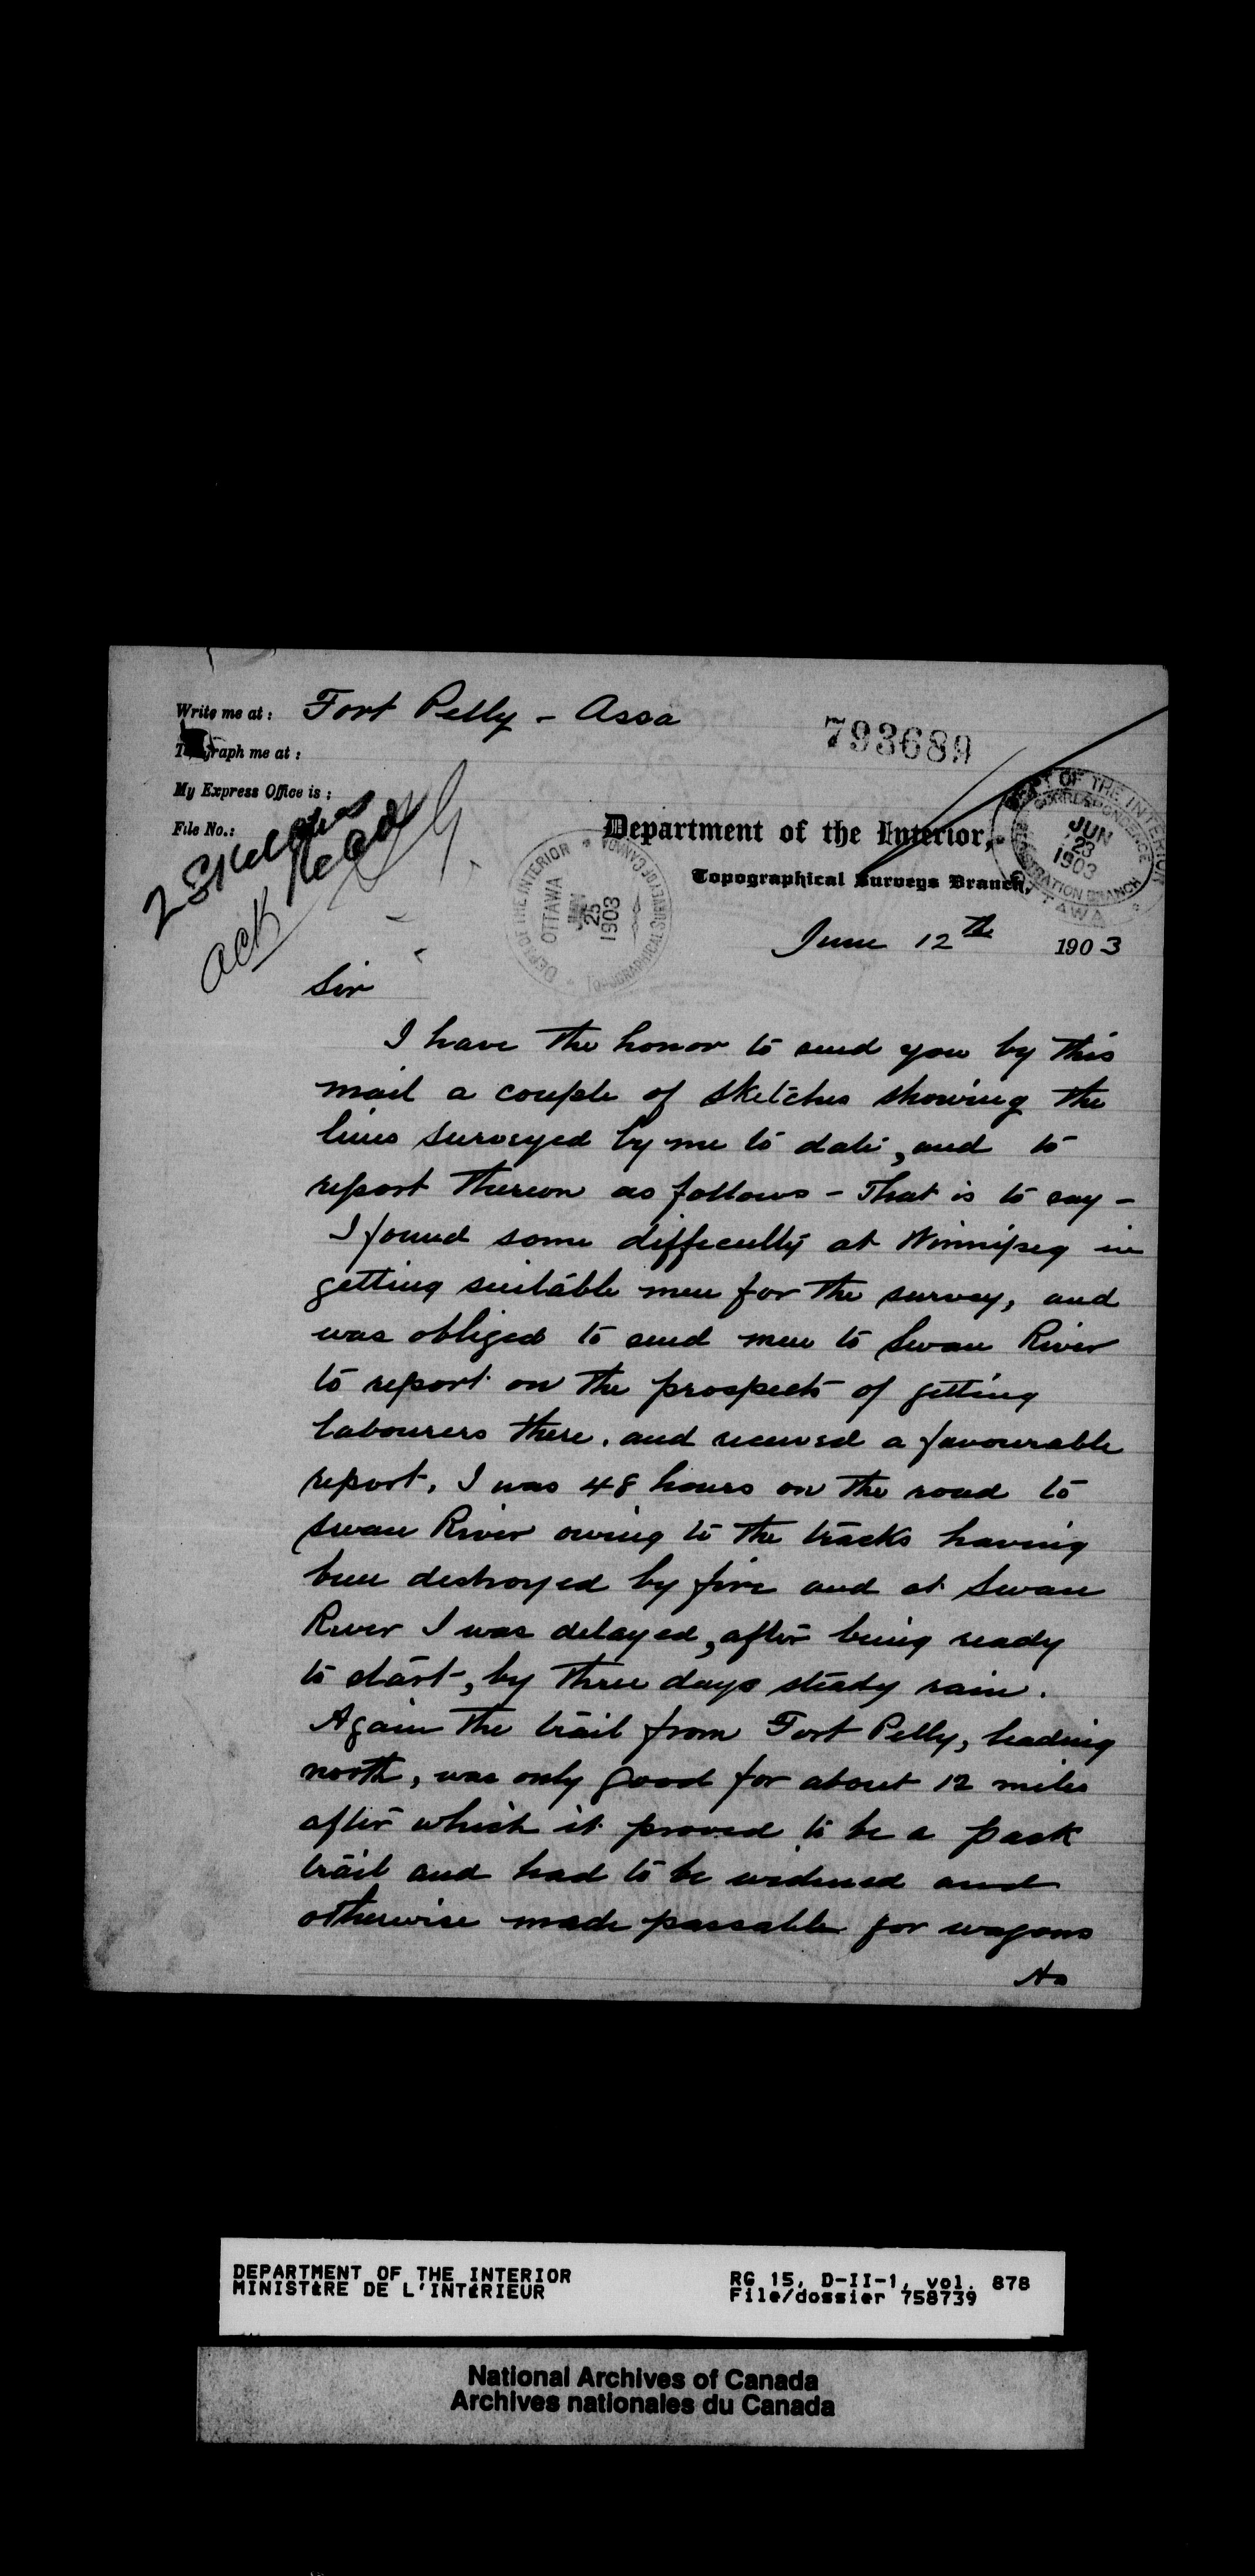 Write me at: Fort Pelly - Assa
793689
Telegraph me at:
My Express Office is:
File No.:
2 Sketches
Read
ack
Department of the Interior,
Topographical Surveys Branch,
DEPT OF THE INTERIOR
CORRESPONDENCE
JUN
23
1903
REGISTRATION BRANCH
OTTAWA
DEPT OF THE INTERIOR
OTTAWA
JUN
25
1903
TOPOGRAPHICAL SURVEY OF CANADA
June 12th 1903
Sir
I have the honor to send you by this
mail a couple of sketches showing the
lines surveyed by me to date, and to
report thereon as follows - That is to say -
I found some difficulty at Winnipeg in
getting suitable men for the survey, and
was obliged to send men to Swan River
to report on the prospects of getting
labourers there, and received a favourable
report. I was 48 hours on the road to
Swan River owing to the tracks having
been destroyed by fire and at Swan
River I was delayed, after being ready
to start, by three days steady rain.
Again the trail from Fort Pelly, leading
north, was only good for about 12 miles
after which it proved to be a pack
trail and had to be widened and
otherwise made passable for wagons
As
DEPARTMENT OF THE INTERIOR
MINISTÈRE DE L'INTÉRIEUR
RG 15, D-II-1, vol. 878
File/dossier 758739
National Archives of Canada
Archives nationales du Canada